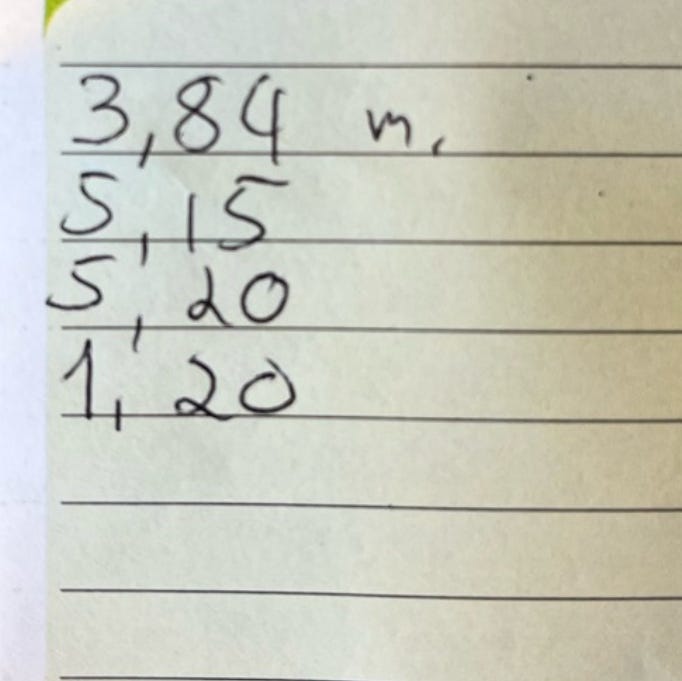 3,84 m.
5,15
5,20
1,20